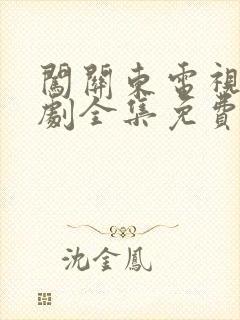 闖關東電視
劇全集免費
沈金鳳